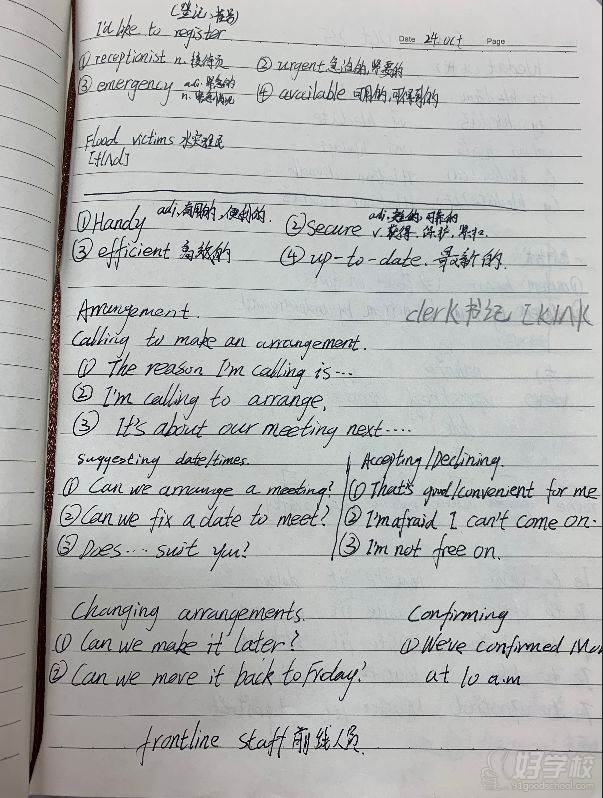 (登记、挂号)
I'd like to register
Date 24.Oct Page
① receptionist n. 接待员 ② urgent 急迫的,紧要的
③ emergency adj. 紧急的 n. 紧急情况 ④ available 可用的,可得到的
Flood victims 水灾难民
[flʌd]
① Handy adj. 有用的,便利的. ② Secure adj. 的,可靠的 v. 获得、保护、
③ efficient 高效的 ④ up-to-date. 最新的.
Arrangement. clerk 书记 [klʌk
Calling to make an arrangement.
① The reason I'm calling is...
② I'm calling to arrange.
③ It's about our meeting next....
suggesting date/times.
① Can we arrange a meeting?
② Can we fix a date to meet?
③ Does... suit you?
Accepting/Declining.
① That's good/convenient for me
② I'm afraid I can't come on.
③ I'm not free on.
Changing arrangements.
① Can we make it later?
② Can we move it back to Friday?
Confirming
① We've confirmed Mon
at 10 a.m
frontline staff 前线人员.
好学校
91goodschool.com